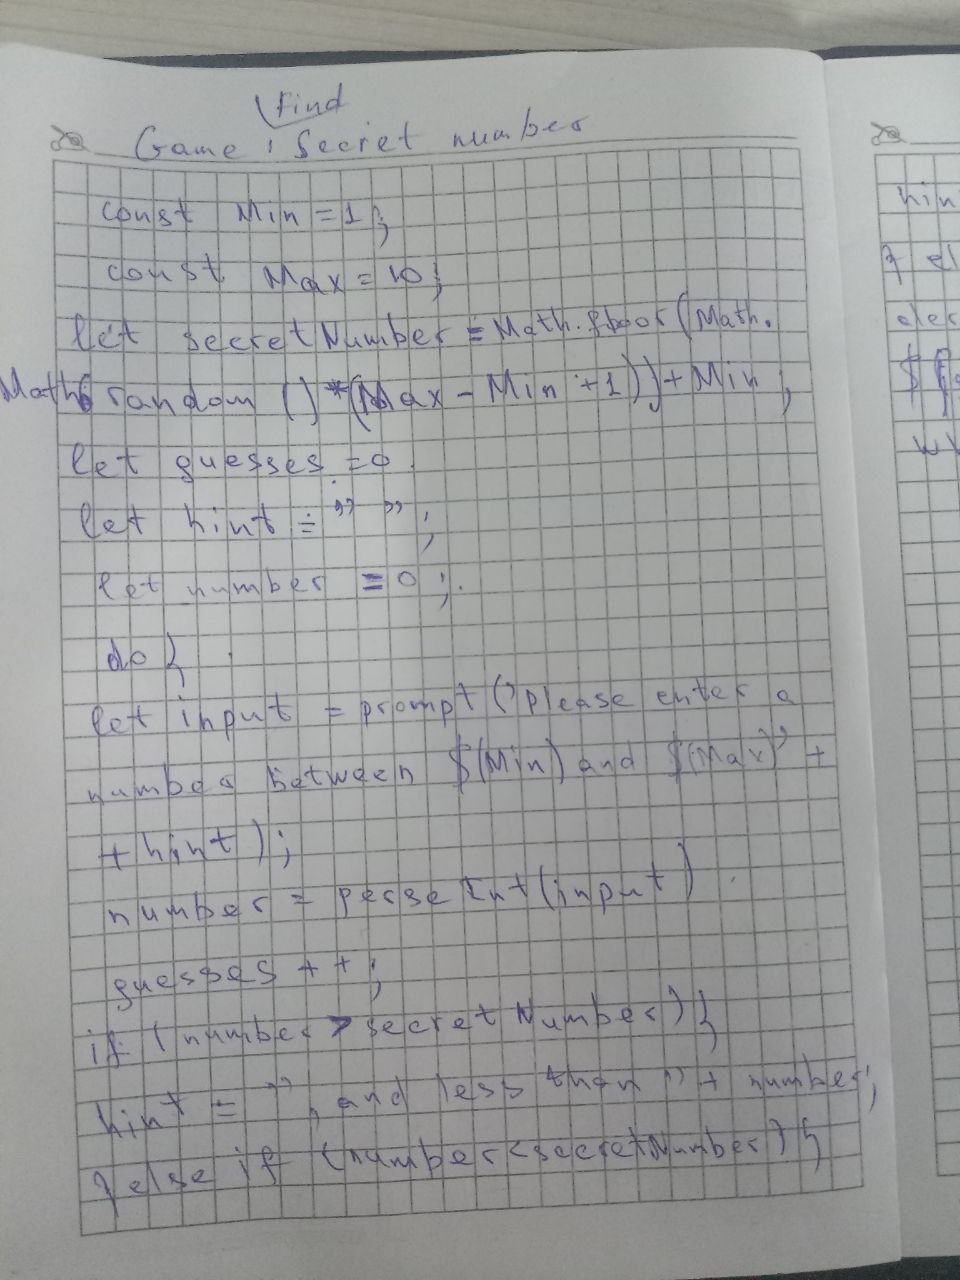 Find
Game: Secret number
const Min = 1;
const Max = 10;
let secretNumber = Math.floor(Math.
Math random () * (Max - Min + 1)) + Min;
let guesses = 0
let hint = " ";
let number = 0;
do {
let input = prompt ('please enter a
number between $(Min) and $(Max)' +
+ hint);
number = perse Int (input)
guesses ++;
if (number > secret Number) {
hint = ", and less than " + number;
} else if (number < secretNumber) {
hin
} el
$